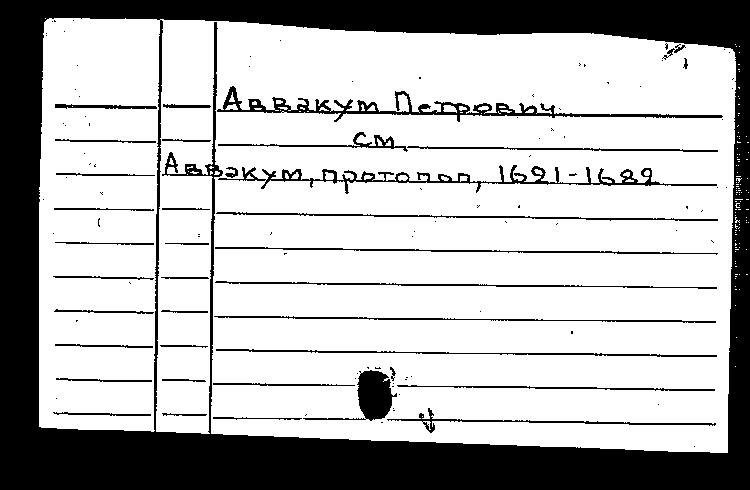 Аввакум Петрович
см.
Аввакум, протопоп, 1621-1682